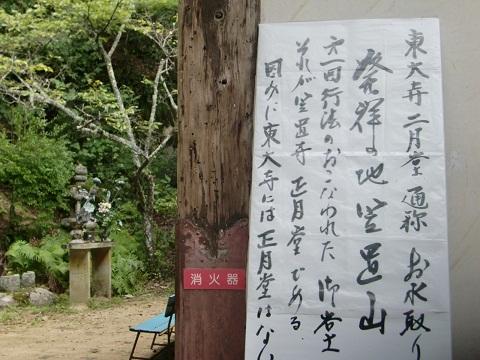 東大寺 二月堂 通称 お水取り
発祥の地 笠置山
第一回行法のおこなわれた 御
それが笠置寺 正月堂である
因みに東大寺には 正月堂はない
消火器